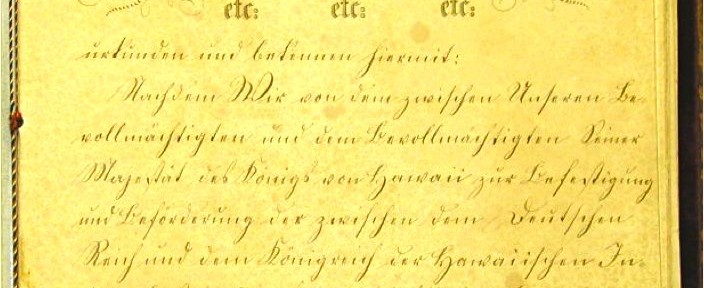 etc: etc: etc:
urkunden und bekennen hiermit:
Nachdem Wir von dem zwischen Unseren Be-
vollmächtigten und dem Bevollmächtigten Seiner
Majestät des Königs von Hawaii zur Befestigung
und Beförderung der zwischen dem Deutschen
Reich und dem Königreich der Hawaiischen In-